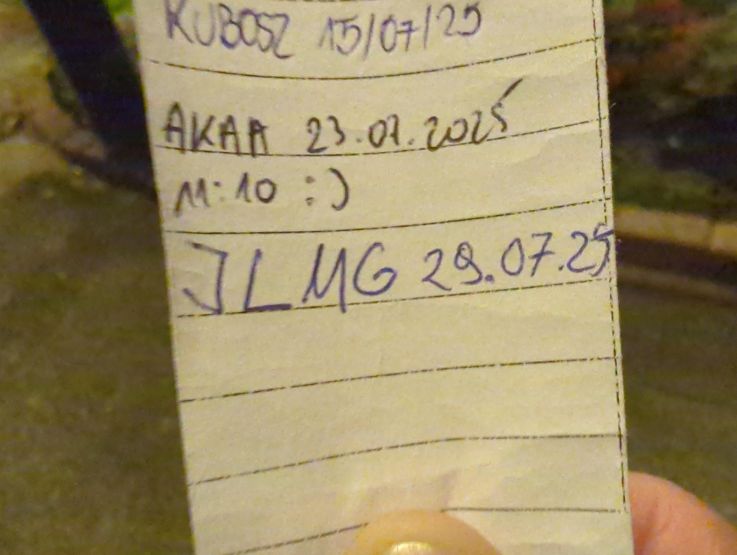 KUBOSZ 15/07/25
AKAA 23.07.2025
11:10 :)
JLMG 29.07.25